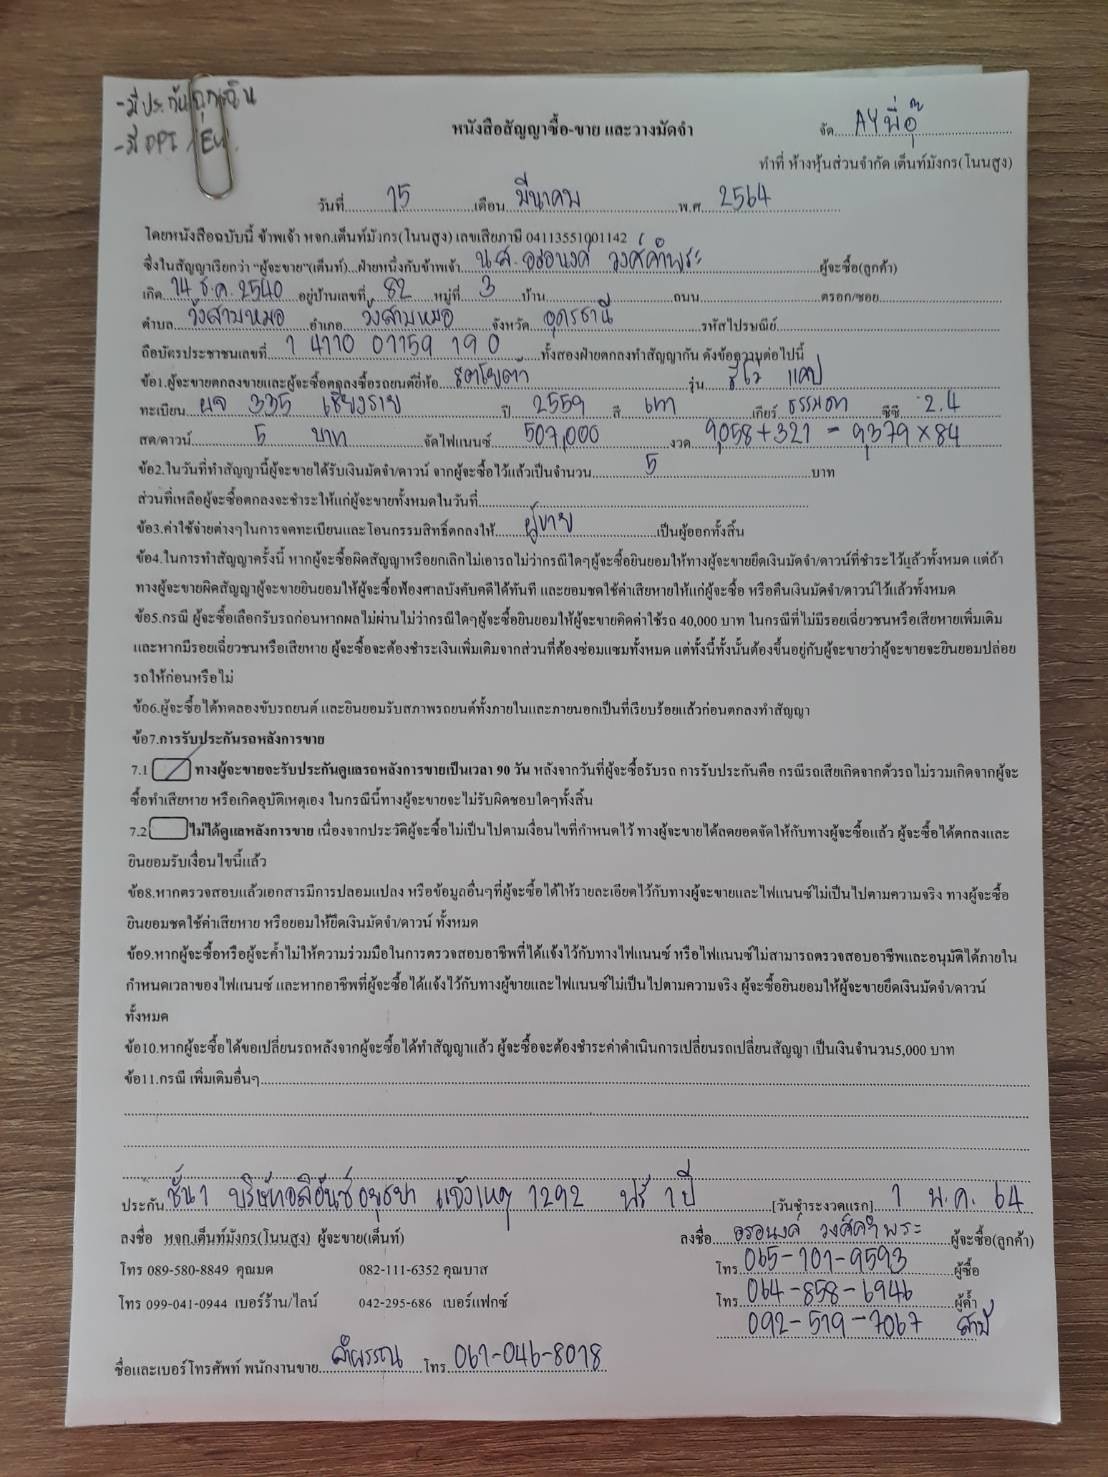 -มีประกันฉุกเฉิน
-มี
หนังสือสัญญาซื้อ-ขาย และวางมัดจำ
จัด AYพี่อุ๊
ทำที่ ห้างหุ้นส่วนจำกัด เต็นท์มังกร(โนนสูง)
วันที่ 15 เดือน มีนาคม พ.ศ. 2564
โดยหนังสือฉบับนี้ ข้าพเจ้า หจก.เต็นท์มังกร(โนนสูง) เลขเสียภาษี 04113551001142
ซึ่งในสัญญาเรียกว่า "ผู้จะขาย"(เต็นท์)...ฝ่ายหนึ่งกับข้าพเจ้า น.ส. อรอนงค์ วงศ์คำพระ ผู้จะซื้อ(ลูกค้า)
เกิด 14 ธ.ค. 2540 อยู่บ้านเลขที่ 82 หมู่ที่ 3 บ้าน ถนน ตรอก/ซอย
ตำบล วังสามหมอ อำเภอ วังสามหมอ จังหวัด อุดรธานี รหัสไปรษณีย์
ถือบัตรประชาชนเลขที่ 1 4110 01159 19 0 ทั้งสองฝ่ายตกลงทำสัญญากัน ดังข้อความต่อไปนี้
ข้อ1.ผู้จะขายตกลงขายและผู้จะซื้อตกลงซื้อรถยนต์ยี่ห้อ โตโยต้า รุ่น รีโว่ แคป
ทะเบียน ผจ 335 เชียงราย ปี 2559 สี เทา เกียร์ ธรรมดา ซีซี 2.4
สด/ดาวน์ 5 บาท จัดไฟแนนซ์ 507,000 งวด 9,058+321 = 9,379×84
ข้อ2.ในวันที่ทำสัญญานี้ผู้จะขายได้รับเงินมัดจำ/ดาวน์ จากผู้จะซื้อไว้แล้วเป็นจำนวน 5 บาท
ส่วนที่เหลือผู้จะซื้อตกลงจะชำระให้แก่ผู้จะขายทั้งหมดในวันที่
ข้อ3.ค่าใช้จ่ายต่างๆในการจดทะเบียนและโอนกรรมสิทธิ์ตกลงให้ ผู้ขาย เป็นผู้ออกทั้งสิ้น
ข้อ4.ในการทำสัญญาครั้งนี้ หากผู้จะซื้อผิดสัญญาหรือยกเลิกไม่เอารถไม่ว่ากรณีใดๆผู้จะซื้อยินยอมให้ทางผู้จะขายยึดเงินมัดจำ/ดาวน์ที่ชำระไว้แล้วทั้งหมด แต่ถ้า
ทางผู้จะขายผิดสัญญาผู้จะขายยินยอมให้ผู้จะซื้อฟ้องศาลบังคับคดีได้ทันที และยอมชดใช้ค่าเสียหายให้แก่ผู้จะซื้อ หรือคืนเงินมัดจำ/ดาวน์ไว้แล้วทั้งหมด
ข้อ5.กรณี ผู้จะซื้อเลือกรับรถก่อนหากผลไม่ผ่านไม่ว่ากรณีใดๆผู้จะซื้อยินยอมให้ผู้จะขายคิดค่าใช้รถ 40,000 บาท ในกรณีที่ไม่มีรอยเฉี่ยวชนหรือเสียหายเพิ่มเติม
และหากมีรอยเฉี่ยวชนหรือเสียหาย ผู้จะซื้อจะต้องชำระเงินเพิ่มเติมจากส่วนที่ต้องซ่อมแซมทั้งหมด แต่ทั้งนี้ทั้งนั้นต้องขึ้นอยู่กับผู้จะขายว่าผู้จะขายจะยินยอมปล่อย
รถให้ก่อนหรือไม่
ข้อ6.ผู้จะซื้อได้ทดลองขับรถยนต์ และยินยอมรับสภาพรถยนต์ทั้งภายในและภายนอกเป็นที่เรียบร้อยแล้วก่อนตกลงทำสัญญา
ข้อ7.การรับประกันรถหลังการขาย
7.1 ทางผู้จะขายจะรับประกันดูแลรถหลังการขายเป็นเวลา 90 วัน หลังจากวันที่ผู้จะซื้อรับรถ การรับประกันคือ กรณีรถเสียเกิดจากตัวรถไม่รวมเกิดจากผู้จะ
ซื้อทำเสียหาย หรือเกิดอุบัติเหตุเอง ในกรณีนี้ทางผู้จะขายจะไม่รับผิดชอบใดๆทั้งสิ้น
7.2 ไม่ได้ดูแลหลังการขาย เนื่องจากประวัติผู้จะซื้อไม่เป็นไปตามเงื่อนไขที่กำหนดไว้ ทางผู้จะขายได้ลดยอดจัดให้กับทางผู้จะซื้อแล้ว ผู้จะซื้อได้ตกลงและ
ยินยอมรับเงื่อนไขนี้แล้ว
ข้อ8.หากตรวจสอบแล้วเอกสารมีการปลอมแปลง หรือข้อมูลอื่นๆที่ผู้จะซื้อได้ให้รายละเอียดไว้กับทางผู้จะขายและไฟแนนซ์ไม่เป็นไปตามความจริง ทางผู้จะซื้อ
ยินยอมชดใช้ค่าเสียหาย หรือยอมให้ยึดเงินมัดจำ/ดาวน์ ทั้งหมด
ข้อ9.หากผู้จะซื้อหรือผู้จะค้ำไม่ให้ความร่วมมือในการตรวจสอบอาชีพที่ได้แจ้งไว้กับทางไฟแนนซ์ หรือไฟแนนซ์ไม่สามารถตรวจสอบอาชีพและอนุมัติได้ภายใน
กำหนดเวลาของไฟแนนซ์ และหากอาชีพที่ผู้จะซื้อได้แจ้งไว้กับทางผู้ขายและไฟแนนซ์ไม่เป็นไปตามความจริง ผู้จะซื้อยินยอมให้ผู้จะขายยึดเงินมัดจำ/ดาวน์
ทั้งหมด
ข้อ10.หากผู้จะซื้อได้ขอเปลี่ยนรถหลังจากผู้จะซื้อได้ทำสัญญาแล้ว ผู้จะซื้อจะต้องชำระค่าดำเนินการเปลี่ยนรถเปลี่ยนสัญญา เป็นเงินจำนวน5,000 บาท
ข้อ11.กรณี เพิ่มเติมอื่นๆ
ประกัน ชั้น1 บริษัทอลิอันซ์อยุธยา แจ้งเหตุ 1292 ฟรี 1 ปี [วันชำระงวดแรก] 1 พ.ค. 64
ลงชื่อ หจก.เต็นท์มังกร(โนนสูง) ผู้จะขาย(เต็นท์) ลงชื่อ อรอนงค์ วงศ์คำพระ ผู้จะซื้อ(ลูกค้า)
โทร 089-580-8849 คุณมด 082-111-6352 คุณบาส โทร 065-101-9593 ผู้ซื้อ
โทร 099-041-0944 เบอร์ร้าน/ไลน์ 042-295-686 เบอร์แฟกซ์ โทร 064-858-6946 ผู้ค้ำ
092-519-7067 สามี
ชื่อและเบอร์โทรศัพท์ พนักงานขาย ลำพรรณ โทร 061-046-8018